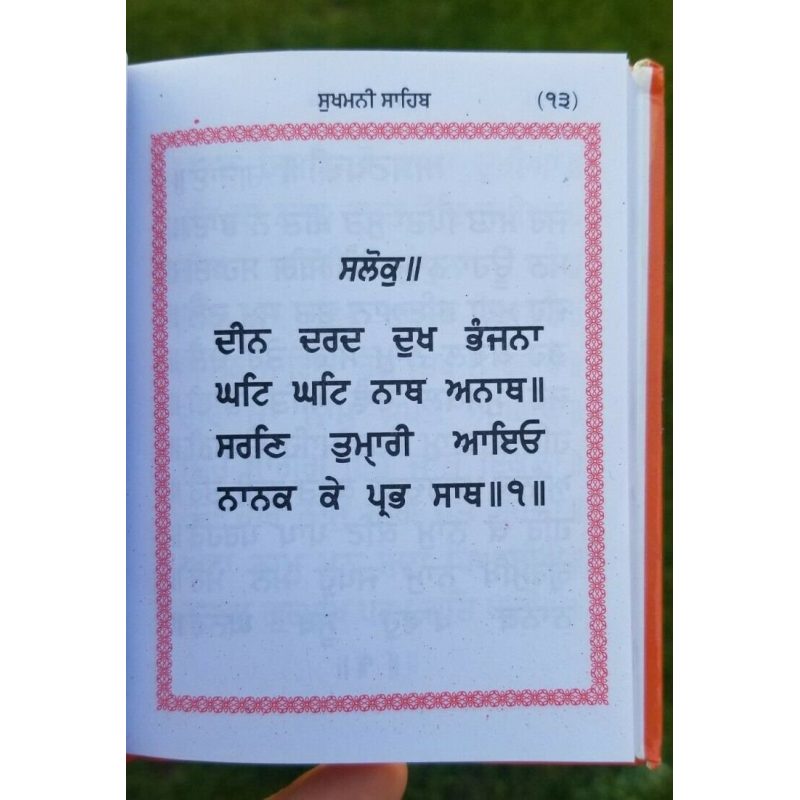 ਸੁਖਮਨੀ ਸਾਹਿਬ (੧੩)
ਸਲੋਕੁ॥
ਦੀਨ ਦਰਦ ਦੁਖ ਭੰਜਨਾ
ਘਟਿ ਘਟਿ ਨਾਥ ਅਨਾਥ॥
ਸਰਣਿ ਤੁਮ੍ਹਾਰੀ ਆਇਓ
ਨਾਨਕ ਕੇ ਪ੍ਰਭ ਸਾਥ॥੧॥